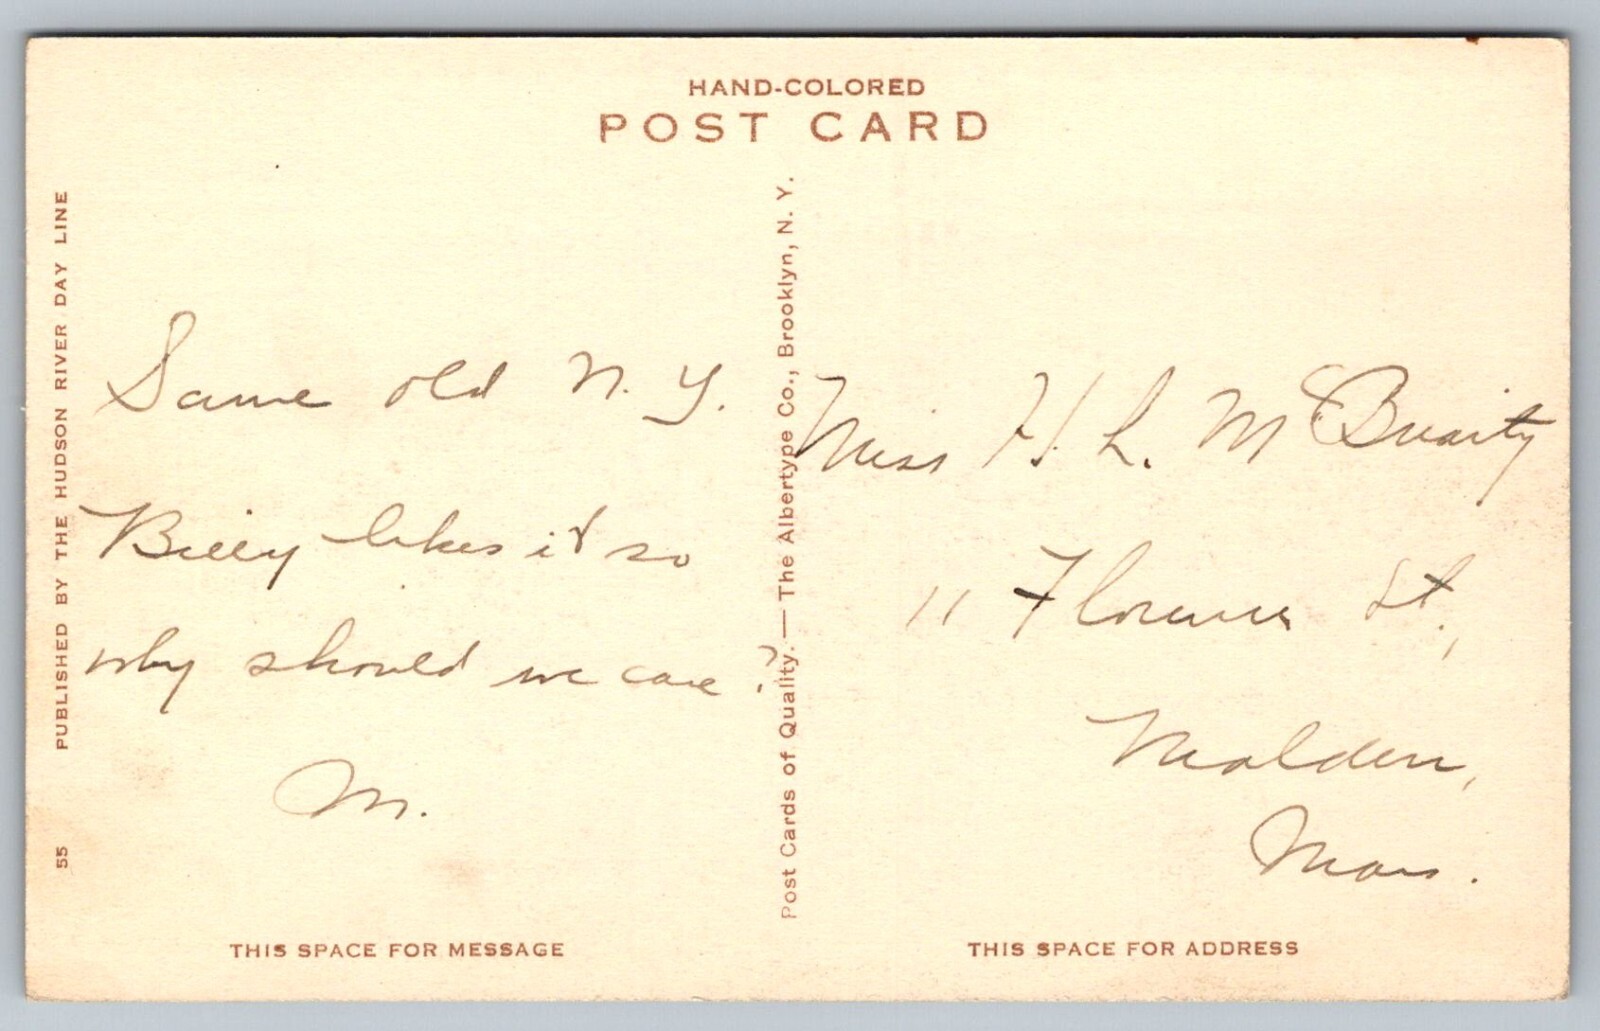 HAND-COLORED
POST CARD
PUBLISHED BY THE HUDSON RIVER DAY LINE
55
Same old N.Y.
Billy likes it so
why should we care?
M.
THIS SPACE FOR MESSAGE
Post Cards of Quality.—The Albertype Co., Brooklyn, N. Y.
Miss H. L.
11 Florence St.,
Malden,
Mass.
THIS SPACE FOR ADDRESS